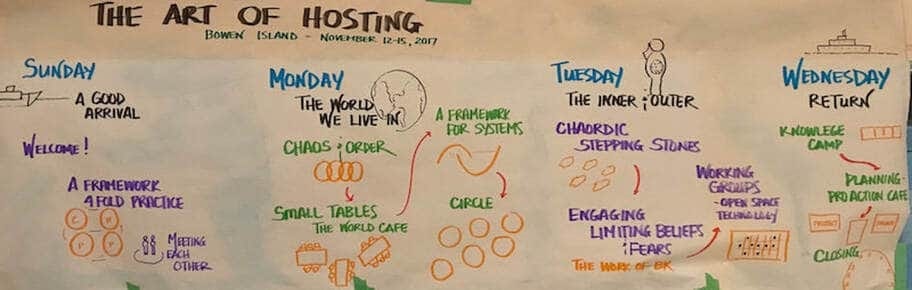 THE ART OF HOSTING
BOWEN ISLAND - NOVEMBER 12-15, 2017
SUNDAY
A GOOD
ARRIVAL
WELCOME!
A FRAMEWORK
4 FOLD PRACTICE
C H
P P
MEETING
EACH
OTHER
MONDAY
THE WORLD
WE LIVE IN
CHAOS & ORDER
SMALL TABLES
THE WORLD CAFE
A FRAMEWORK
FOR SYSTEMS
CIRCLE
TUESDAY
THE INNER & OUTER
CHAORDIC
STEPPING STONES
ENGAGING
LIMITING BELIEFS
& FEARS
THE WORK OF BK
WORKING
GROUPS
- OPEN SPACE
TECHNOLOGY
WEDNESDAY
RETURN
KNOWLEGE
CAMP
PLANNING-
PRO ACTION CAFE
CLOSING